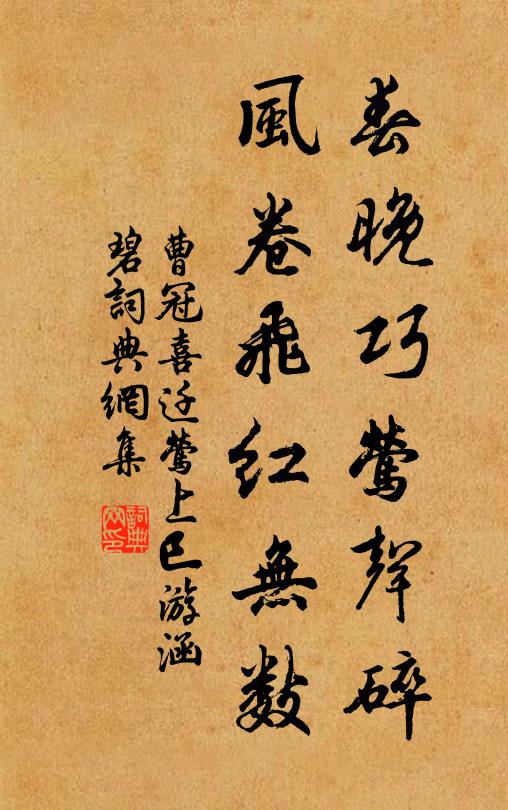 春晚巧鶯聲碎
風卷飛紅無數
曹冠喜迁鶯上巳游涵
碧詞典網集
詞典
网印